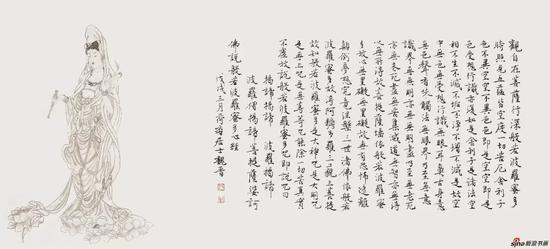 觀自在菩薩行深般若波羅蜜多
時照見五蘊皆空度一切苦厄舍利子
色不異空空不異色色即是空空即是
色受想行識亦復如是舍利子是諸法空
相不生不滅不垢不淨不增不減是故空
中無色無受想行識無眼耳鼻舌身意
無色聲香味觸法無眼界乃至無意
識界無無明亦無無明盡乃至無老死
亦無老死盡無苦集滅道無智亦無得
以無所得故菩提薩埵依般若波羅蜜
多故心無罣礙無罣礙故無有恐怖遠離
顛倒夢想究竟涅槃三世諸佛依般若
波羅蜜多故得阿耨多羅三藐三菩提
故知般若波羅蜜多是大神咒是大明咒
是無上咒是無等等咒能除一切苦真實
不虛故說般若波羅蜜多咒即說咒曰
揭諦揭諦 波羅揭諦
波羅僧揭諦 菩提薩婆訶
佛說般若波羅蜜多心經
戊戌三月齋居士
sina 新浪书画